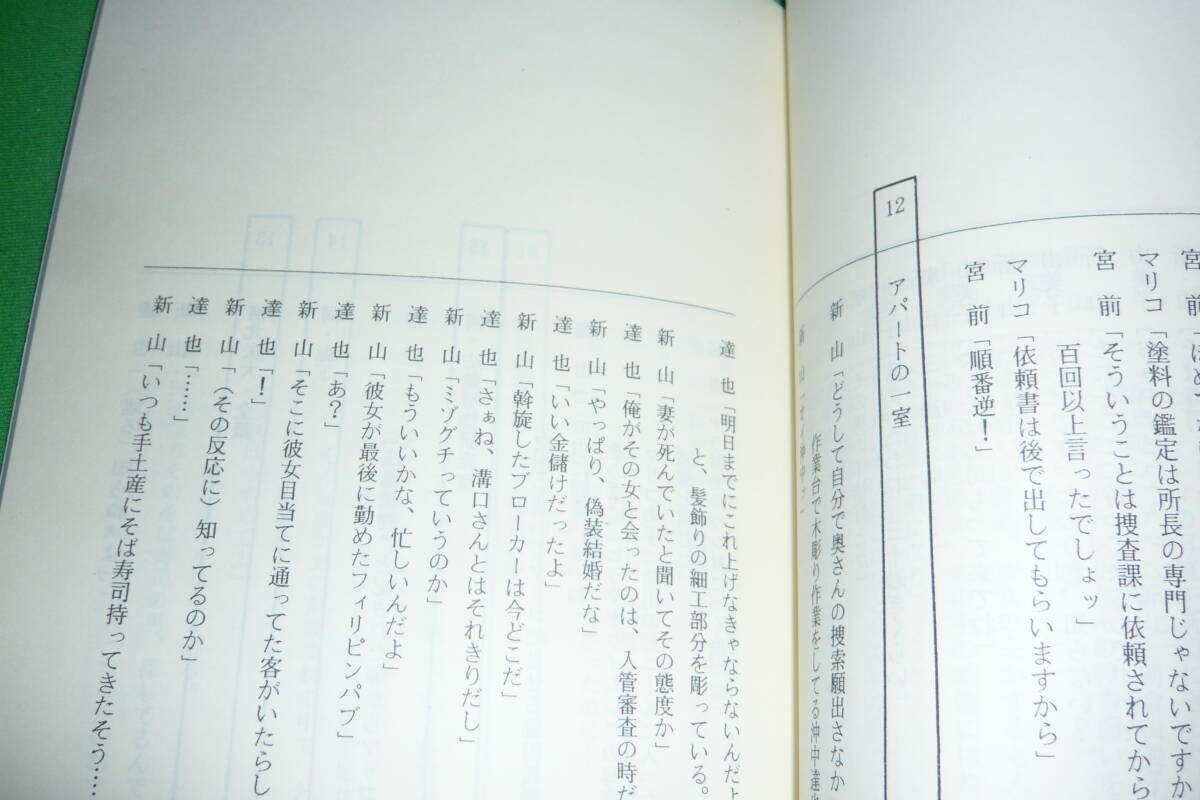 宮 前「ほめ
マリコ「塗料の鑑定は所長の専門じゃないですか
宮 前「そういうことは捜査課に依頼されてから
百回以上言ったでしょッ」
マリコ「依頼書は後で出してもらいますから」
宮 前「順番逆！」
12 アパートの一室
新 山「どうして自分で奥さんの捜索願出さなか
作業台で木彫り作業をしてる仲中達也
新 山「
達 也「明日までにこれ上げなきゃならないんだよ
と、髪飾りの細工部分を彫っている。
新 山「妻が死んでいたと聞いてその態度か」
達 也「俺がその女と会ったのは、入管審査の時だ
新 山「やっぱり、偽装結婚だな」
達 也「いい金儲けだったよ」
新 山「斡旋したブローカーは今どこだ」
達 也「さぁね、溝口さんとはそれきりだし」
新 山「ミゾグチっていうのか」
達 也「もういいかな、忙しいんだよ」
新 山「彼女が最後に勤めたフィリピンパブ」
達 也「あ？」
新 山「そこに彼女目当てに通ってた客がいたらし
達 也「！」
新 山「（その反応に）知ってるのか」
達 也「……」
新 山「いつも手土産にそば寿司持ってきたそう……
14
13
15